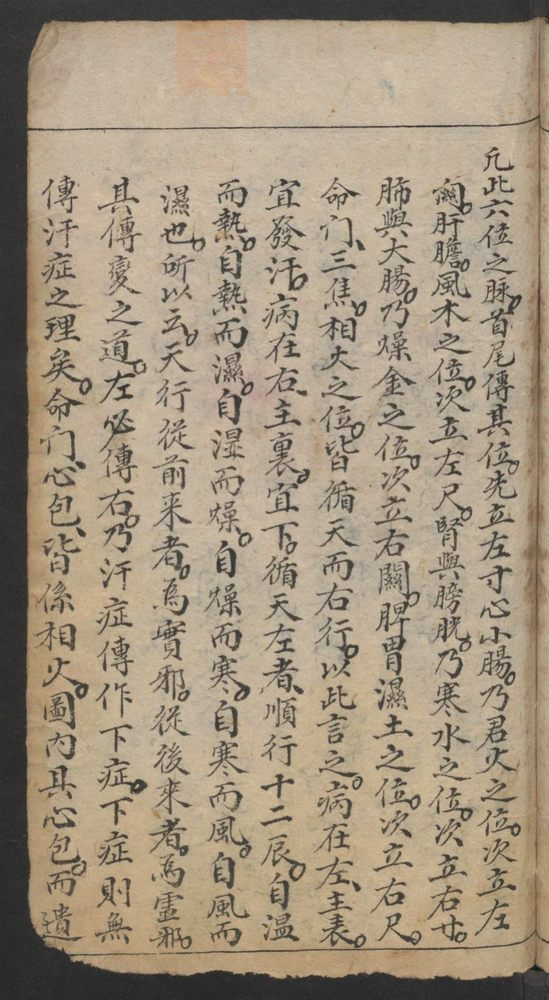 凢此六位之脉。首尾傳其位。先立左寸。心小腸。乃君火之位。次立左
関。肝膽。風木之位。次立左尺。腎與膀胱。乃寒水之位。次立右寸。
肺與大腸。乃燥金之位。次立右關。脾胃濕土之位。次立右尺。
命门、三焦。相火之位。皆循天而右行。以此言之。病在左、主表。
宜發汗。病在右、主裏。宜下。循天左者、順行十二辰。自温
而熱。自熱而濕。自湿而燥。自燥而寒。自寒而風。自風而
濕也。所以云。天行從前来者。為實邪。從後來者。為虛邪。
具傳變之道。左必傳右。乃汗症傳作下症。下症則無
傳汗症之理矣。命门、心包、皆係相火。圖内具心包。而遺